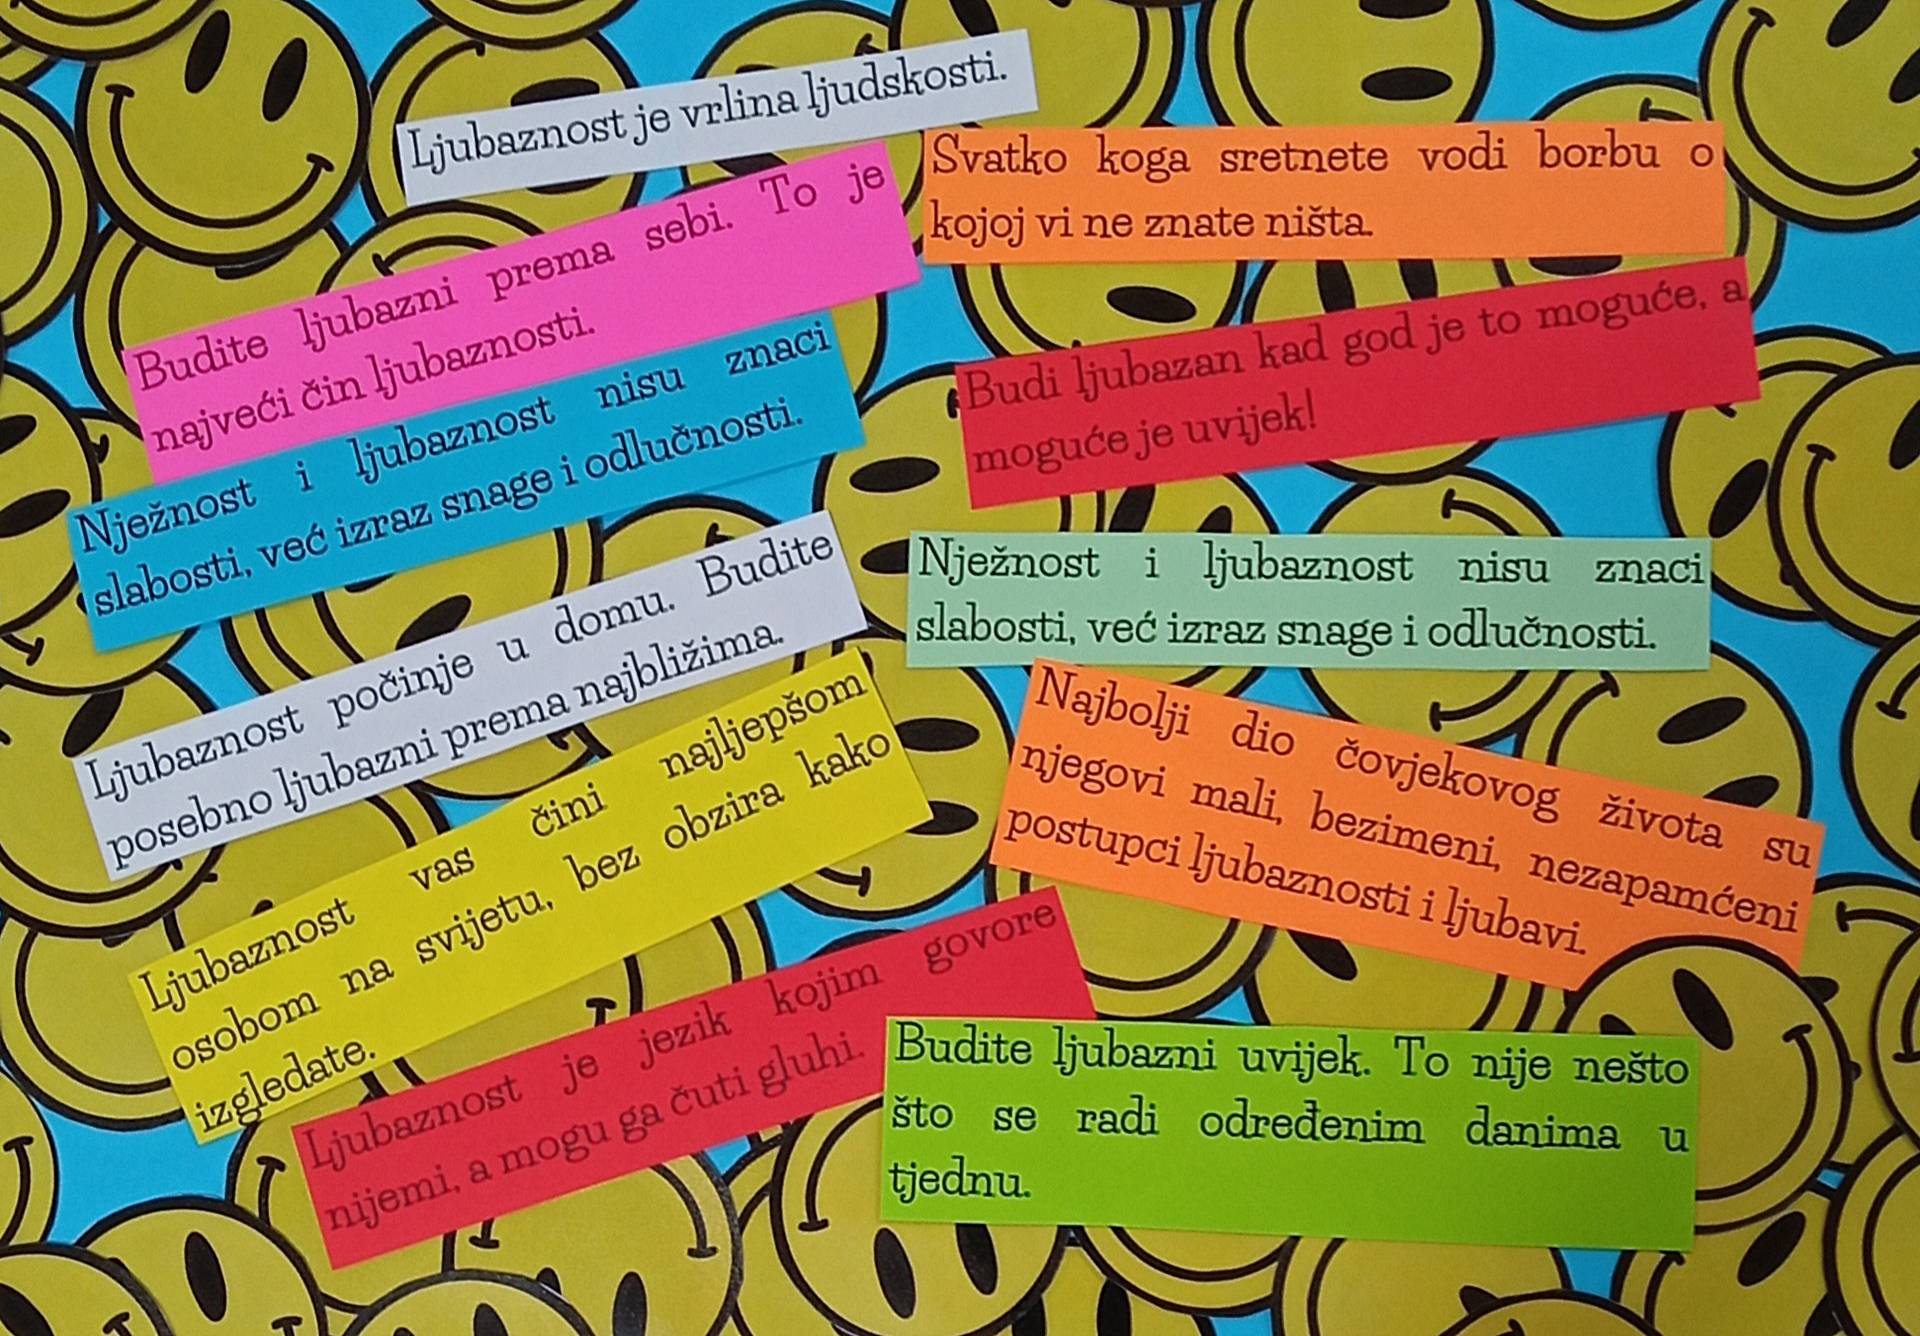 Ljubaznost je vrlina ljudskosti.
Svatko koga sretnete vodi borbu o
kojoj vi ne znate ništa.
Budite ljubazni prema sebi. To je
najveći čin ljubaznosti.
Budi ljubazan kad god je to moguće, a
moguće je uvijek!
Nježnost i ljubaznost nisu znaci
slabosti, već izraz snage i odlučnosti.
Nježnost i ljubaznost nisu znaci
slabosti, već izraz snage i odlučnosti.
Ljubaznost počinje u domu. Budite
posebno ljubazni prema najbližima.
Najbolji dio čovjekovog života su
njegovi mali, bezimeni, nezapamćeni
postupci ljubaznosti i ljubavi.
Ljubaznost vas čini najljepšom
osobom na svijetu, bez obzira kako
izgledate.
Ljubaznost je jezik kojim govore
nijemi, a mogu ga čuti gluhi.
Budite ljubazni uvijek. To nije nešto
što se radi određenim danima u
tjednu.